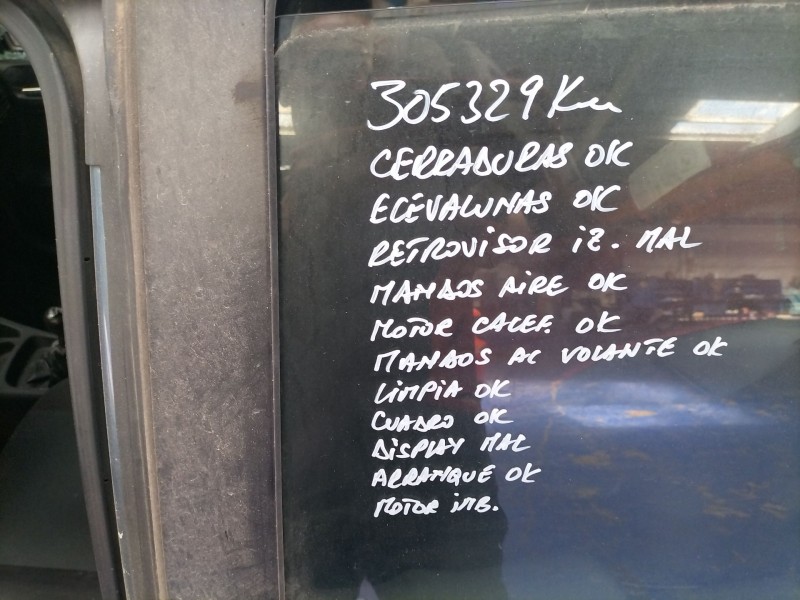 305329 Km
CERRADURAS OK
ELEVALUNAS OK
RETROVISOR iZ. MAL
MANDOS AIRE OK
MOTOR CALEF. OK
MANDOS AL VOLANTE OK
LIMPIA OK
CUADRO OK
DISPLAY MAL
ARRANQUE OK
MOTOR iNB.